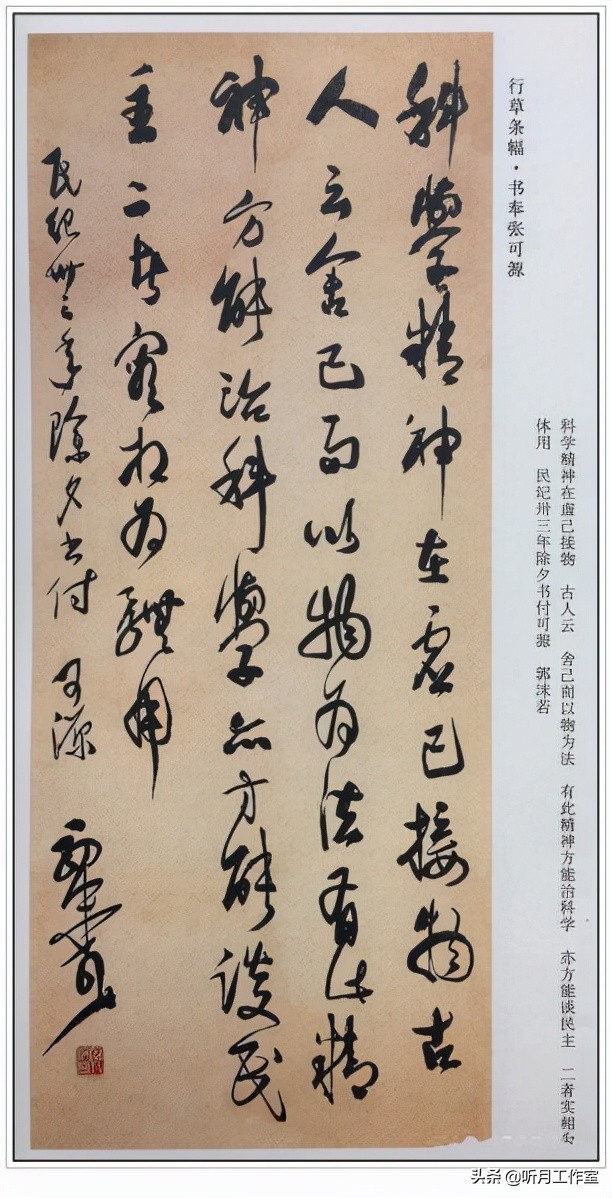 行草条幅·书奉张可源
科学精神在虚己接物 古人云 舍己而以物为法 有此精神方能治科学 亦方能谈民主 二者实相为
体用 民纪卅三年除夕书付可源 郭沫若
科學精神在虛己接物古
人云舍己而以物為法有此精
神方能治科學亦方能談民
主二者實相為體用
民紀卅三年除夕書付可源
郭沫若
头条 @听月工作室